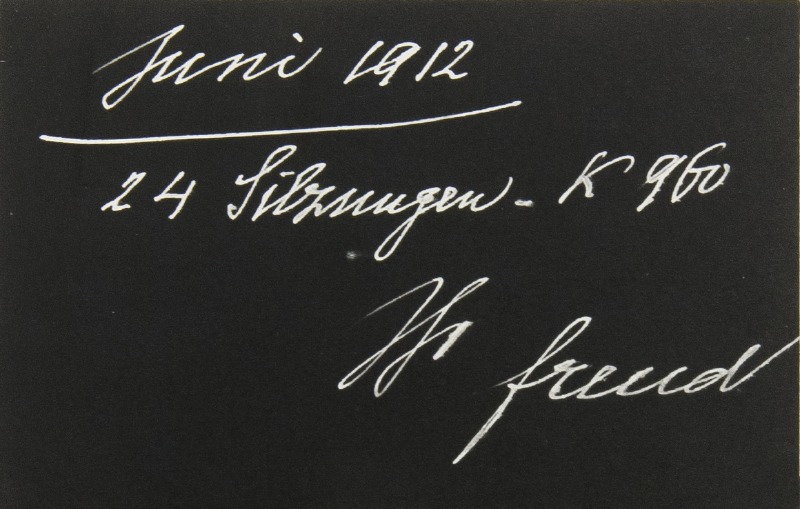 Juni 1912
24 Sitzungen - K 960
Ihr
freud